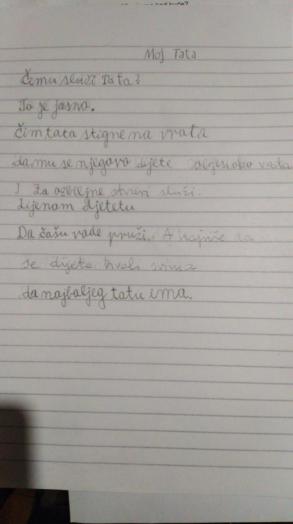 Moj Tata
Čemu služi Tata?
To je jasno.
Čim tata stigne na vrata
da mu se njegovo dijete objesi oko vrata
I za ozbiljne stvari služi.
Lijenom djetetu
Da čašu vode pruži. A najviše za
se dijete hvali svima
da najboljeg tatu ima.